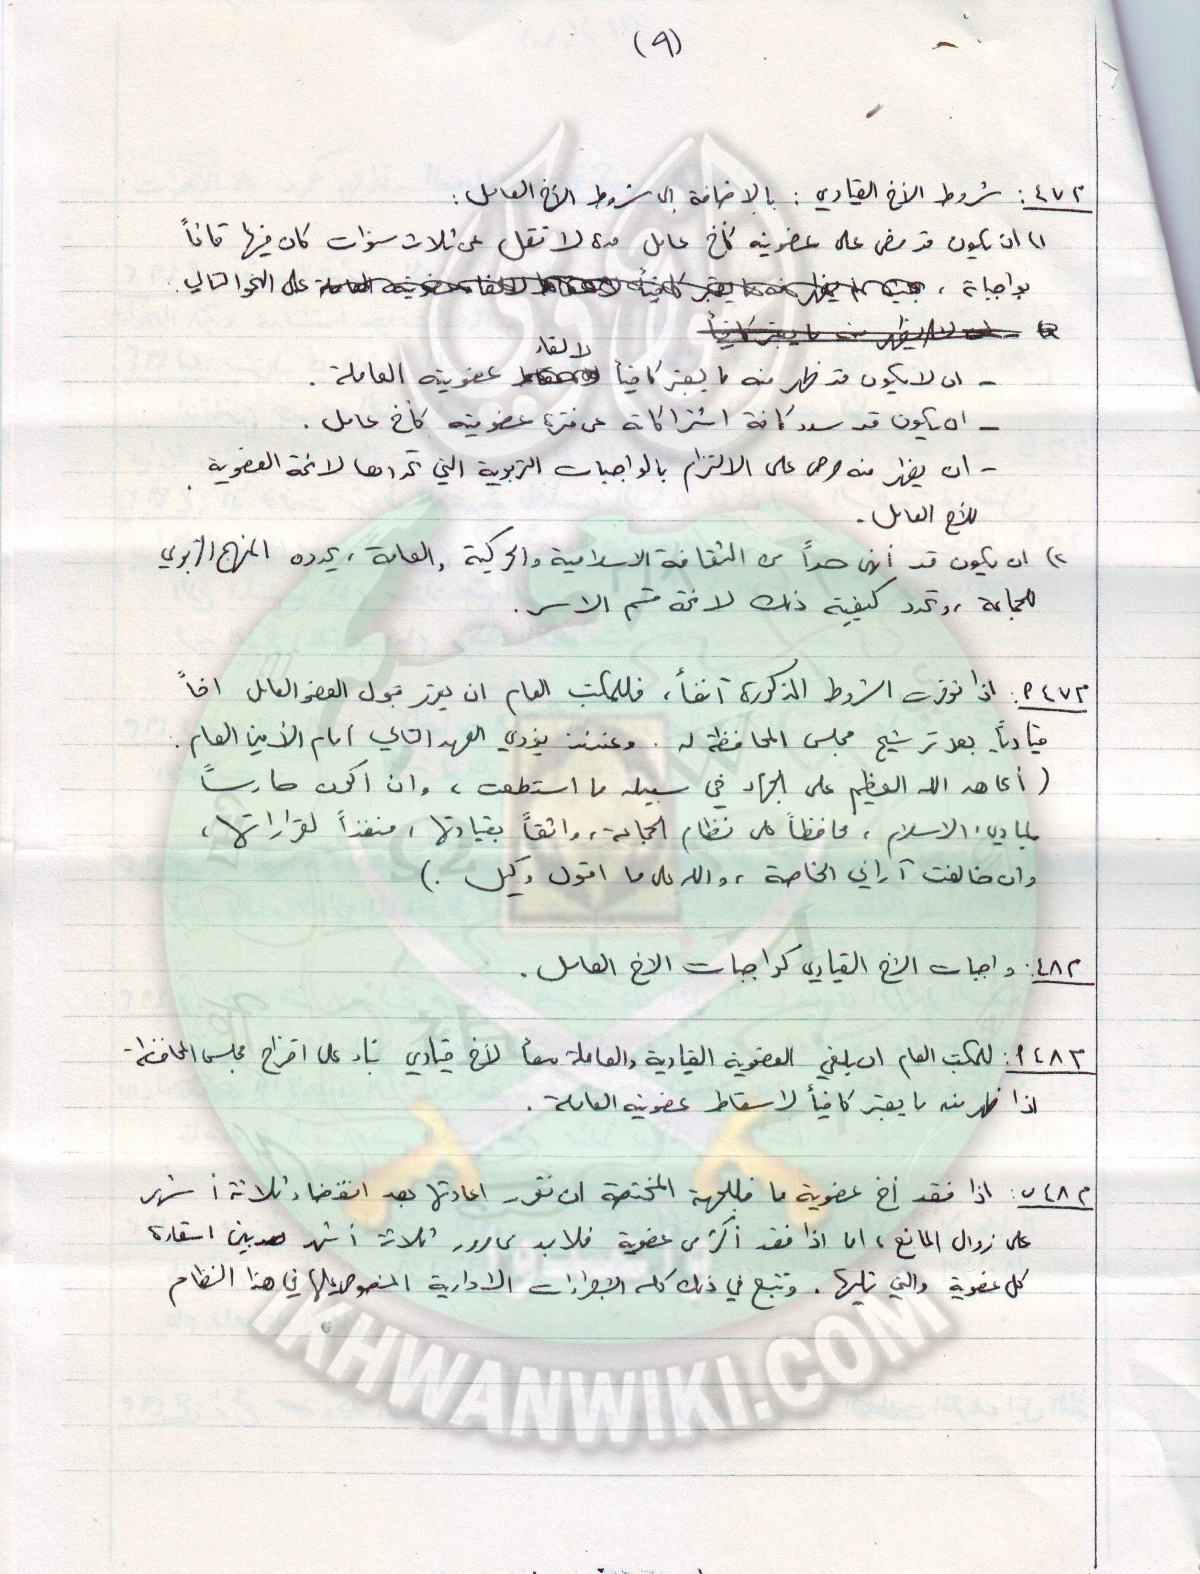 (٩)
م٤٧: شروط الأخ القيادي: بالإضافة إلى شروط الأخ العامل:
١) ان يكون قد مضى على عضويته كأخ عامل مدة لا تقل عن ثلاث سنوات كان فيها قائماً
بواجباته، على النحو التالي.
لالغاء
- ان لا يكون قد ظهر منه ما يعتبر كافياً عضويته العاملة.
- ان يكون قد سدد كافة اشتراكاته عن فترة عضويته كأخ عامل.
- ان يظهر منه حرص على الالتزام بالواجبات التربوية التي تحددها لائحة العضوية
للأخ العامل.
٢) ان يكون قد أنهى حداً من الثقافة الاسلامية والحركية والعامة، يحدده المنهج التربوي
للجماعة، وتحدد كيفية ذلك لائحة قسم الاسر.
م٤٧: اذا توفرت الشروط المذكورة آنفاً، فللمكتب العام ان يقرر قبول العضو العامل اخاً
قيادياً بعد ترشيح مجلس المحافظة له. وعندئذ يؤدي العهد التالي امام الأمين العام.
(أعاهد الله العظيم على الجهاد في سبيله ما استطعت، وان اكون حارساً
لمبادئ الاسلام، محافظاً على نظام الجماعة، واثقاً بقيادتها، منفذاً لقراراتها،
وان خالفت آرائي الخاصة، والله على ما اقول وكيل.)
م٤٨: واجبات الأخ القيادي كواجبات الاخ العامل.
م٤٨: للمكتب العام ان يلغي العضوية القيادية والعاملة معاً لأخ قيادي بناء على اقتراح مجلس المحافظة
اذا ظهر منه ما يعتبر كافياً لاسقاط عضويته العاملة.
م٤٨: اذا فقد أخ عضوية ما فللجهة المختصة ان تقرر اعادتها بعد انقضاء ثلاثة أشهر
على زوال المانع، اما اذا فقد أكثر من عضوية فلابد من مرور ثلاثة أشهر بين استعادة
كل عضوية والتي تليها. وتتبع في ذلك كله الاجراءات الادارية المنصوص عليها في هذا النظام
IKHWANWIKI.COM